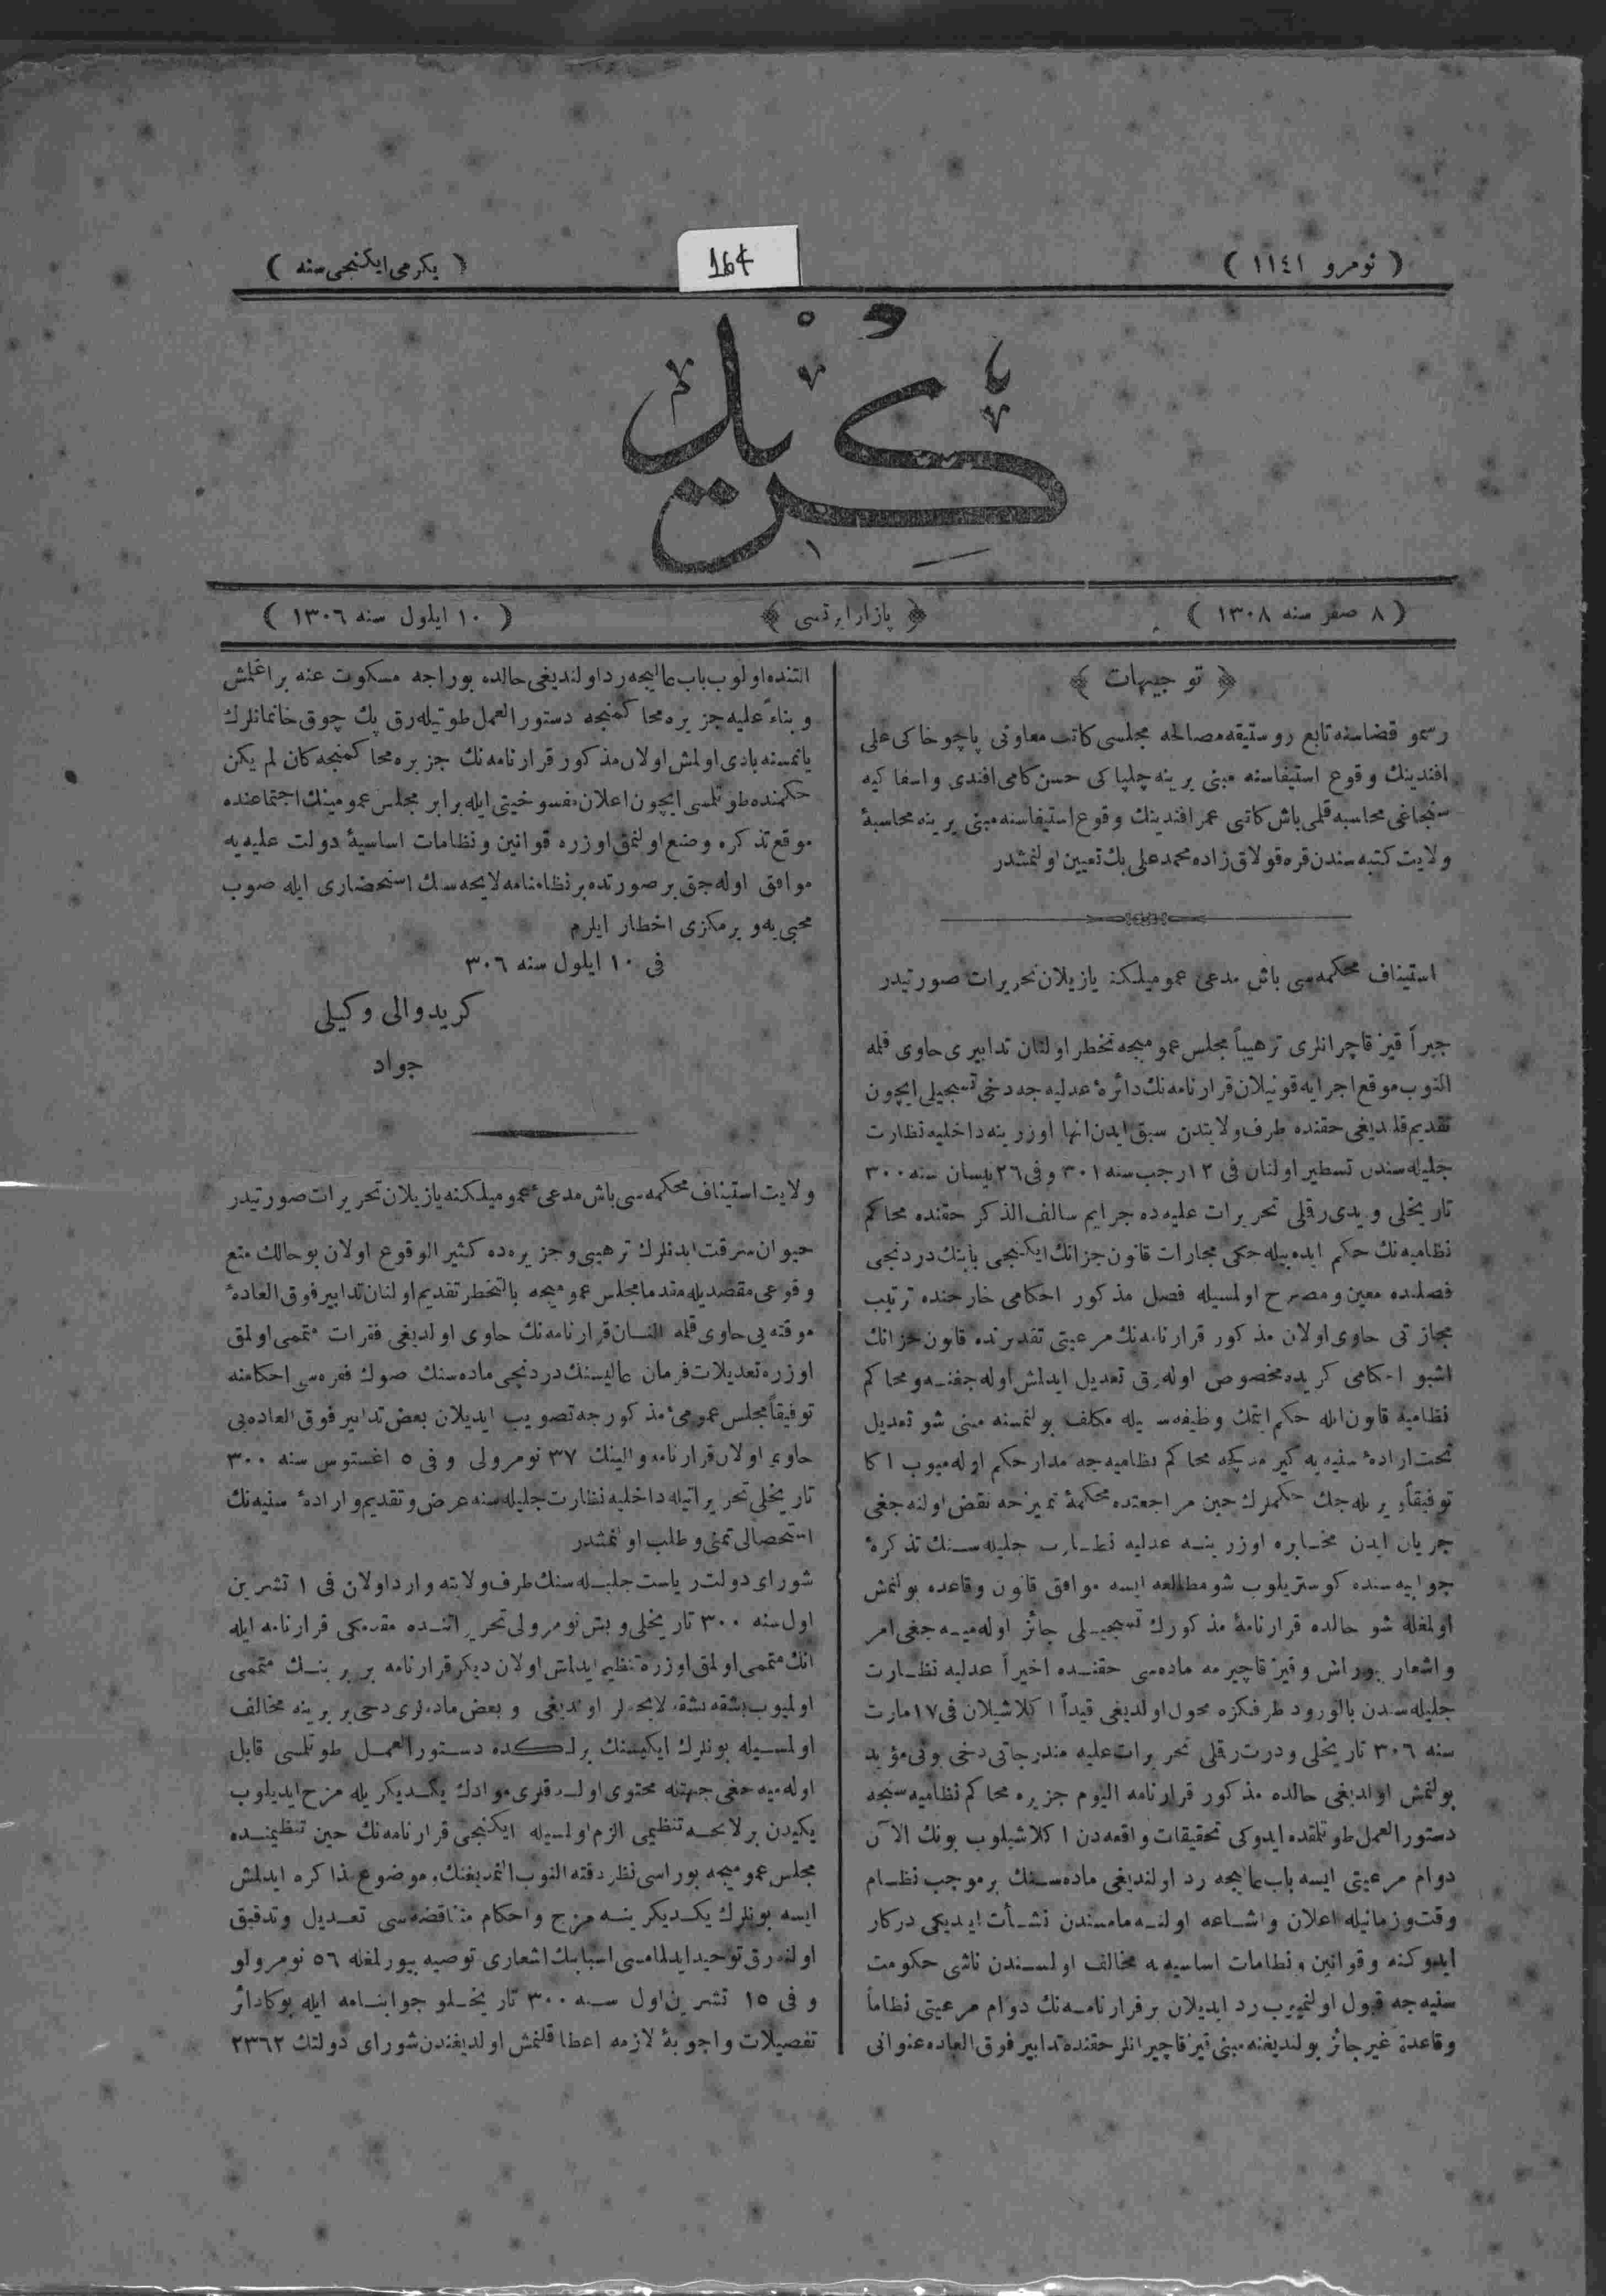 ( نومرو ١١٤١ )
164
( یکرمی ایکنجی سنه )
کرید
( ٨ صفر سنه ١٣٠٨ )
﴿ پازار ایرتسی ﴾
( ١٠ ایلول سنه ١٣٠٦ )
﴿ توجیهات ﴾
رسمو قضاسنه تابع روستیقه مصالحه مجلسی کاتب معاونی پاچوخاکی علی
افندینك وقوع استیفاسنه مبنی یرینه چلپاکی حسن کامی افندی واسفاکیه
سنجاغی محاسبه قلمی باش کاتبی عمر افندینك وقوع استیفاسنه مبنی یرینه محاسبۀ
ولایت کتبه سندن قره قولاق زاده محمد علی بك تعیین اولنمشدر
استیناف محکمه سی باش مدعی عمومیلکنه یازیلان تحریرات صورتیدر
جبراً قیز قاچرانلری ترهیباً مجلس عمومیجه تخطر اولنان تدابیری حاوی قلمه
النوب موقع اجرایه قونیلان قرارنامه نك دائرۀ عدلیه جه دخی تسجیلی ایچون
تقدیم قلندیغی حقنده طرف ولایتدن سبق ایدن انها اوزرینه داخلیه نظارت
جلیله سندن تسطیر اولنان فی ١٢ رجب سنه ٣٠١ وفی ٢٦ نیسان سنه ٣٠٠
تاریخلی ویدی رقلی تحریرات علیه ده جرایم سالف الذکر حقنده محاکم
نظامیه نك حکم ایده بیله جکی مجازات قانون جزانك ایکنجی بابنك دردنجی
فصلنده معین ومصرح اولمسیله فصل مذکور احکامی خارجنده ترتیب
مجازاتی حاوی اولان مذکور قرارنامه نك مرعیتی تقدیرنده قانون جزانك
اشبو احکامی کریده مخصوص اوله رق تعدیل ایدلمش اوله جغنه ومحاکم
نظامیه قانون ایله حکم ایتمك وظیفه سیله مکلف بولنمسنه مبنی شو تعدیل
تحت ارادۀ سنیه یه کیرمدکجه محاکم نظامیه جه مدار حکم اوله میوب اکا
توفیقاً ویریله جك حکملرك حین مراجعتده محکمۀ تمییزجه نقض اولنه جغی
جریان ایدن مخابره اوزرینه عدلیه نظارت جلیله سنك تذکرۀ
جوابیه سنده کوستریلوب شو مطالعه ایسه موافق قانون وقاعده بولنمش
اولمغله شو حالده قرارنامۀ مذکورك تسجیلی جائز اوله میه جغی امر
واشعار بیوراش وقیز قاچیرمه ماده سی حقنده اخیراً عدلیه نظارت
جلیله سندن بالورود طرفکزه محول اولدیغی قیداً اکلاشیلان فی ١٧ مارت
سنه ٣٠٦ تاریخلی ودرت رقلی تحریرات علیه مندرجاتی دخی بونی مؤید
بولنمش اولدیغی حالده مذکور قرارنامه الیوم جزیره محاکم نظامیه سنجه
دستور العمل طوتلمقده ایدوکی تحقیقات واقعه دن اکلاشیلوب بونك الآن
دوام مرعیتی ایسه باب عالیجه رد اولندیغی ماده سنك بر موجب نظام
وقت وزمانیله اعلان واشاعه اولنه مامسندن نشأت ایدیکی درکار
ایدوکنه وقوانین ونظامات اساسیه یه مخالف اولمسندن ناشی حکومت
سنیه جه قبول اولنمیوب رد ایدیلان بر قرارنامه نك دوام مرعیتی نظاماً
وقاعدة غیر جائز بولندیغنه مبنی قیز قاچیرانلر حقنده تدابیر فوق العاده عنوانی
التنده اولوب باب عالیجه رد اولندیغی حالده بوراجه مسکوت عنه براغلمش
وبناءً علیه جزیره محاکمنجه دستور العمل طوتیله رق پك چوق خانمانلرك
یانمسنه بادی اولمش اولان مذکور قرارنامه نك جزیره محاکمنجه کان لم یکن
حکمنده طوتلمسی ایچون اعلان مفسوخیتی ایله برابر مجلس عمومینك اجتماعنده
موقع تذکره وضع اولنمق اوزره قوانین ونظامات اساسیۀ دولت علیه یه
موافق اوله جق بر صورتده بر نظامنامه لایحه سنك استحضاری ایله صوب
محبی یه ویرمکزی اخطار ایلرم
فی ١٠ ایلول سنه ٣٠٦
کرید والی وکیلی
جواد
ولایت استیناف محکمه سی باش مدعیٔ عمومیلکنه یازیلان تحریرات صورتیدر
حیوان سرقت ایدنلرك ترهیبی وجزیره ده کثیر الوقوع اولان بو حالك منع
وقوعی مقصدیله مقدما مجلس عمومیجه بالتخطر تقدیم اولنان تدابیر فوق العادۀ
موقته یی حاوی قلمه النان قرارنامه نك حاوی اولدیغی فقرات متممی اولمق
اوزره تعدیلات فرمان عالیسنك دردنجی ماده سنك صوك فقره سی احکامنه
توفیقاً مجلس عمومیٔ مذکورجه تصویب ایدیلان بعض تدابیر فوق العاده یی
حاوی اولان قرارنامه والینك ٣٧ نومرولی وفی ٥ اغستوس سنه ٣٠٠
تاریخلی تحریراتیله داخلیه نظارت جلیله سنه عرض وتقدیم وارادۀ سنیه نك
استحصالی تمنی وطلب اولنمشدر
شورای دولت ریاست جلیله سنك طرف ولایته وارد اولان فی ١ تشرین
اول سنه ٣٠٠ تاریخلی وبش نومرولی تحریراتنده مقدمکی قرارنامه ایله
انك متممی اولمق اوزره تنظیم ایدلمش اولان دیکر قرارنامه بربرینك متممی
اولمیوب بشقه بشقه لایحه لر اولدیغی وبعض ماده لری دخی بربرینه مخالف
اولمسیله بونلرك ایکیسنك برلکده دستور العمل طوتلمسی قابل
اوله میه جغی جهتله محتوی اولدقلری موادك یکدیکریله مزج ایدیلوب
یکیدن بر لایحه تنظیمی الزم اولمسیله ایکنجی قرارنامه نك حین تنظیمنده
مجلس عمومیجه بوراسی نظر دقته النوب موضوع مذاکره ایدلمش
ایسه بونلرك یکدیکرینه مزج واحکام متناقضه سی تعدیل وتدقیق
اولنه رق توحید ایدلمامسی اسبابنك اشعاری توصیه بیورلمغله ٥٦ نومرولو
وفی ١٥ تشرین اول سنه ٣٠٠ تاریخلو جوابنامه ایله بوکا دائر
تفصیلات واجوبۀ لازمه اعطا قلنمش اولدیغندن شورای دولتك ٢٣٦٢